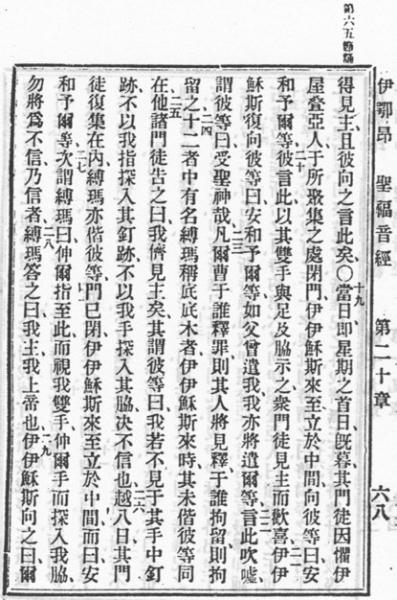 第六五
伊鄂昂 聖福音經 第二十章 六八
得見主、且彼向之言此矣、〇十九當日卽星期之首日、旣暮、其門徒因懼伊
屋叠亞人于所聚集之處閉門、伊伊穌斯來至立於中間、向彼等曰、安
和予爾等、二十彼言此、以其雙手與足及脇示之、衆門徒見主而歡喜、二一伊伊
穌斯復向彼等曰、安和予爾等、如父曾遣我、我亦將遣爾等、二二言此、吹噓、
謂彼等曰、受聖神哉、二三凡爾曹于誰釋罪、則其人將見釋、于誰拘留、則拘
留之、二四十二者中有名縛瑪稱底底木者、伊伊穌斯來時、其未偕彼等同
在、二五他諸門徒告之曰、我儕見主矣、其謂彼等曰、我若不見于其手中釘
跡、不以我指探入其釘跡、不以我手探入其脇、决不信也、二六越八日、其門
徒復集在內、縛瑪亦偕彼等、門已閉、伊伊穌斯來至立於中間而曰、安
和予爾等、二七次謂縛瑪曰、伸爾指至此、而視我雙手、伸爾手而探入我脇、
勿將爲不信、乃信者、二八縛瑪答之曰、我主我上帝也、二九伊伊穌斯向之曰、爾